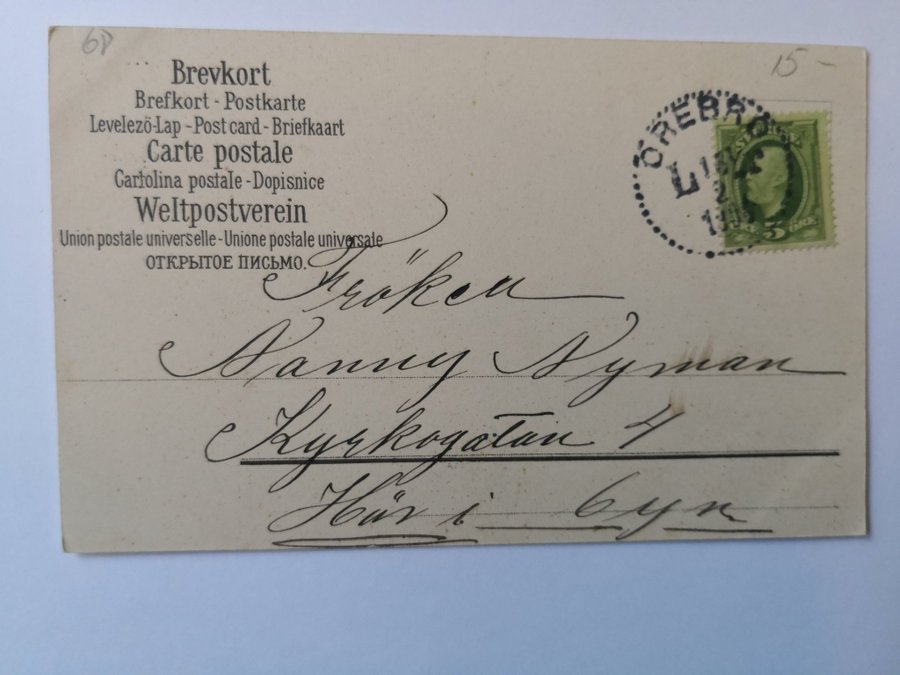 68
15 -
Brevkort
Brefkort - Postkarte
Levelező-Lap - Post card - Briefkaart
Carte postale
Cartolina postale - Dopisnice
Weltpostverein
Union postale universelle - Unione postale universale
ОТКРЫТОЕ ПИСЬМО.
ÖREBRO
L
5
Fröken
Nanny Nyman
Kyrkogatan 4
Här i Byn